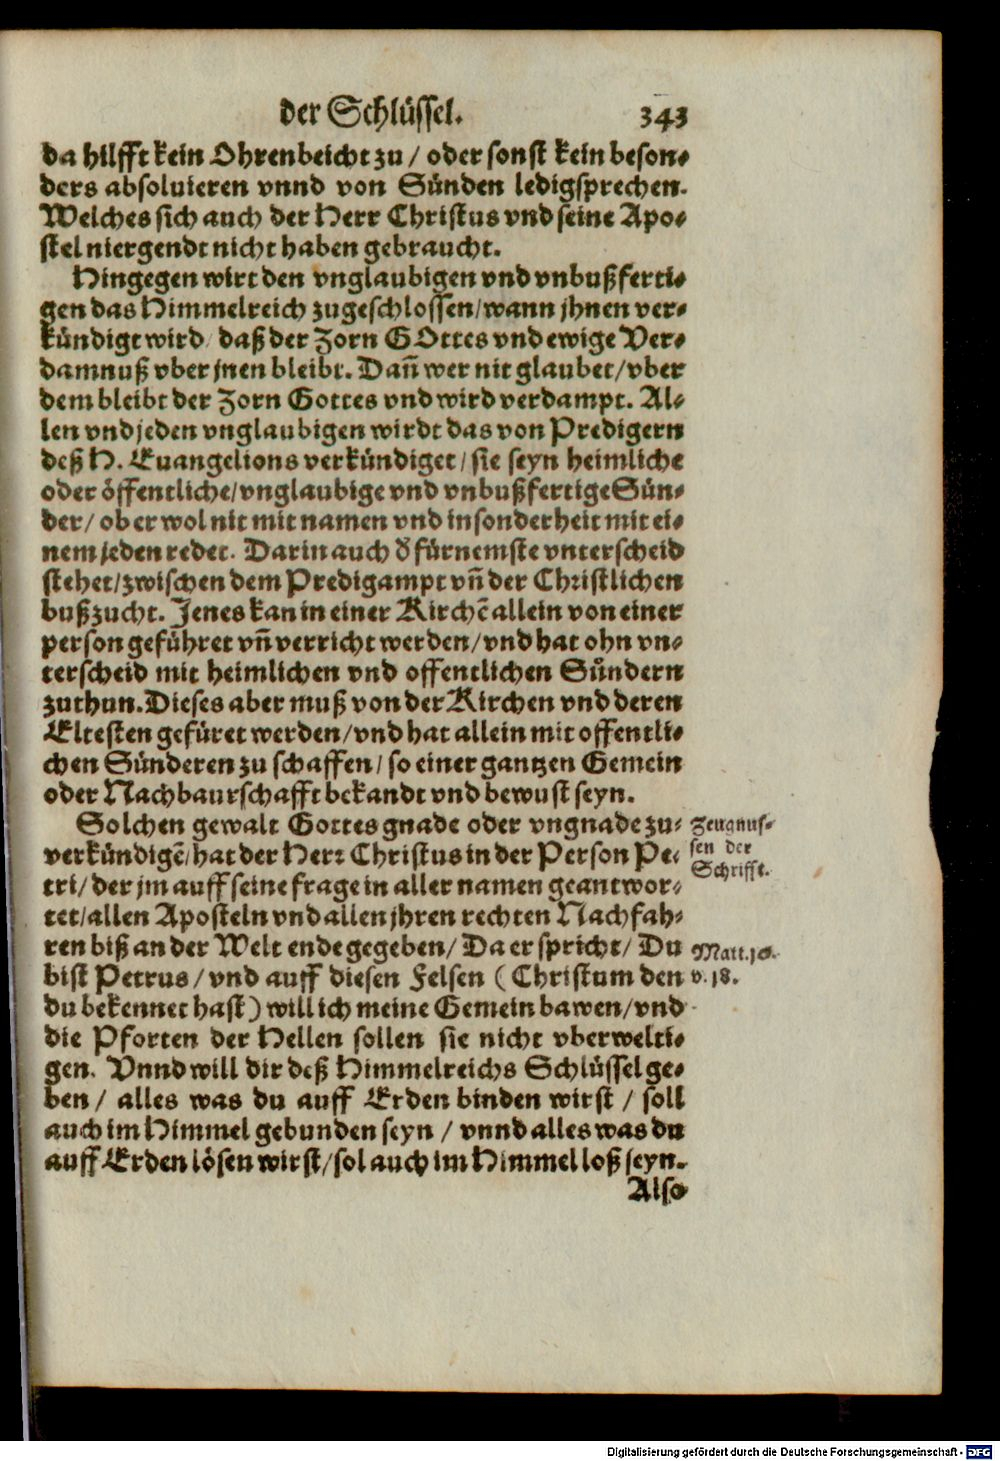 der Schlüssel. 343
da hilfft kein Ohrenbeicht zu / oder sonst kein beson-
ders absoluieren vnnd von Sünden ledigsprechen.
Welches sich auch der Herr Christus vnd seine Apo-
stel niergendt nicht haben gebraucht.
Hingegen wirt den vnglaubigen vnd vnbußferti-
gen das Himmelreich zugeschlossen / wann jhnen ver-
kündigt wird / daß der Zorn GOttes vnd ewige Ver-
damnuß vber jnen bleibt. Dañ wer nit glaubet / vber
dem bleibt der Zorn Gottes vnd wird verdampt. Al-
len vnd jeden vnglaubigen wirdt das von Predigern
deß H. Euangelions verkündiget / sie seyn heimliche
oder öffentliche / vnglaubige vnd vnbußfertige Sün-
der / ob er wol nit mit namen vnd insonderheit mit ei-
nem jeden redet. Darin auch d̃ fürnemste vnterscheid
stehet / zwischen dem Predigampt vñ der Christlichen
bußzucht. Jenes kan in einer Kirchẽ allein von einer
person geführet vñ verricht werden / vnd hat ohn vn-
terscheid mit heimlichen vnd offentlichen Sündern
zuthun. Dieses aber muß von der Kirchen vnd deren
Eltesten gefüret werden / vnd hat allein mit offentli-
chen Sünderen zu schaffen / so einer gantzen Gemein
oder Nachbaurschafft bekandt vnd bewust seyn.
Solchen gewalt Gottes gnade oder vngnade zu-
verkündigẽ / hat der Herr Christus in der Person Pe-
tri / der jm auff seine frage in aller namen geantwor-
tet / allen Aposteln vnd allen jhren rechten Nachfah-
ren biß an der Welt ende gegeben / Da er spricht / Du
bist Petrus / vnd auff diesen Felsen (Christum den
du bekennet hast) will ich meine Gemein bawen / vnd
die Pforten der Hellen sollen sie nicht vberwelti-
gen. Vnnd will dir deß Himmelreichs Schlüssel ge-
ben / alles was du auff Erden binden wirst / soll
auch im Himmel gebunden seyn / vnnd alles was du
auff Erden lösen wirst / sol auch im Himmel loß seyn.
Also
Zeugnus-
sen der
Schrifft.
Matt.16.
v. 18.
Digitalisierung gefördert durch die Deutsche Forschungsgemeinschaft - DFG